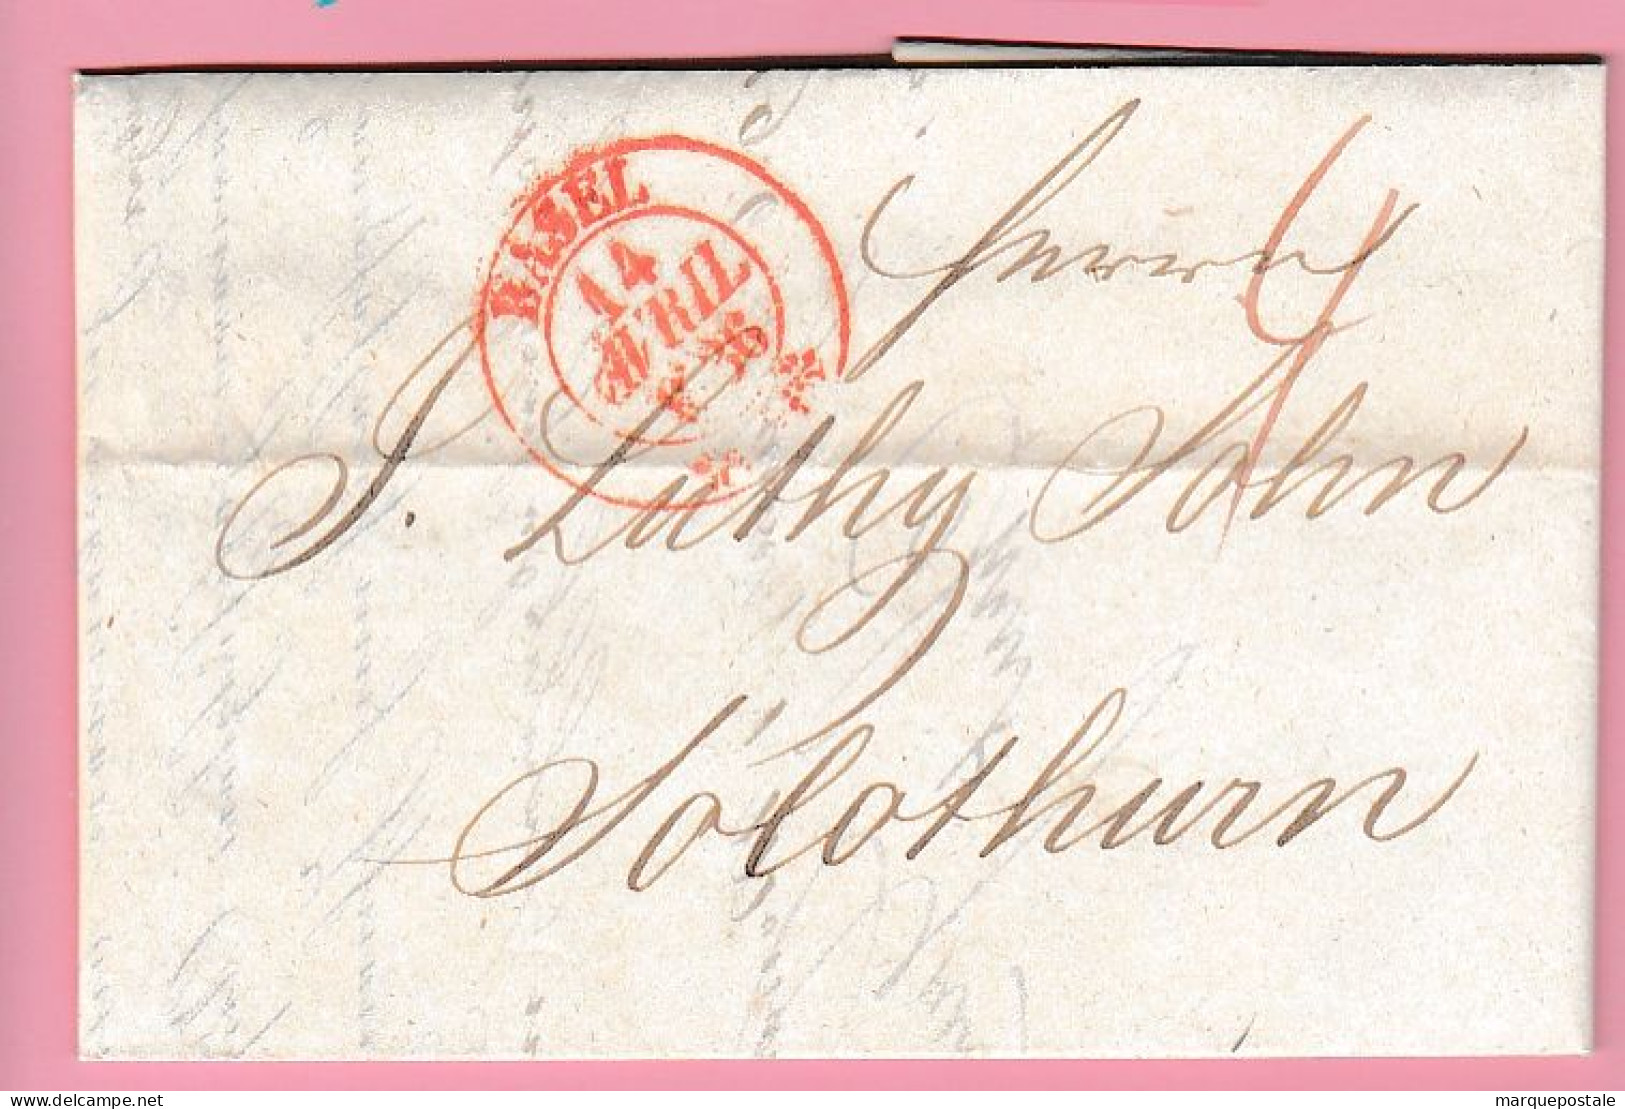 BASEL
14
AVRIL
Herrn
J. Luthy Sohn
Solothurn
delcampe.net
marquepostale